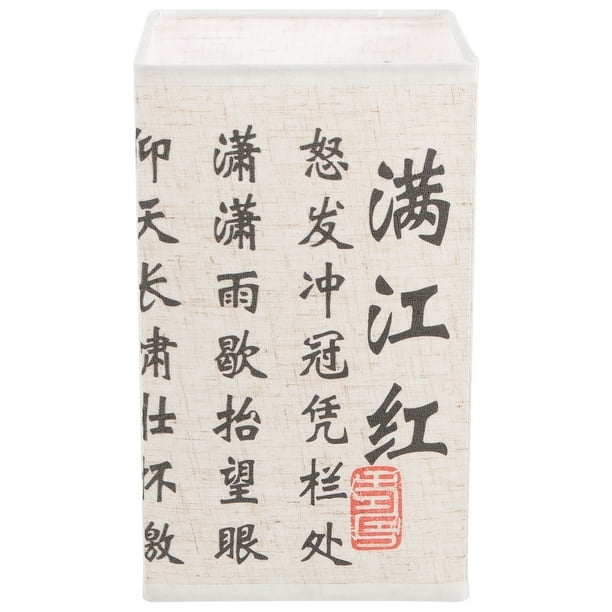 满江红
怒发冲冠凭栏处
潇潇雨歇抬望眼
仰天长肃仕怀激